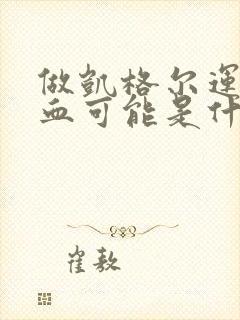 做凯格尔运
血可能是什
崔敖